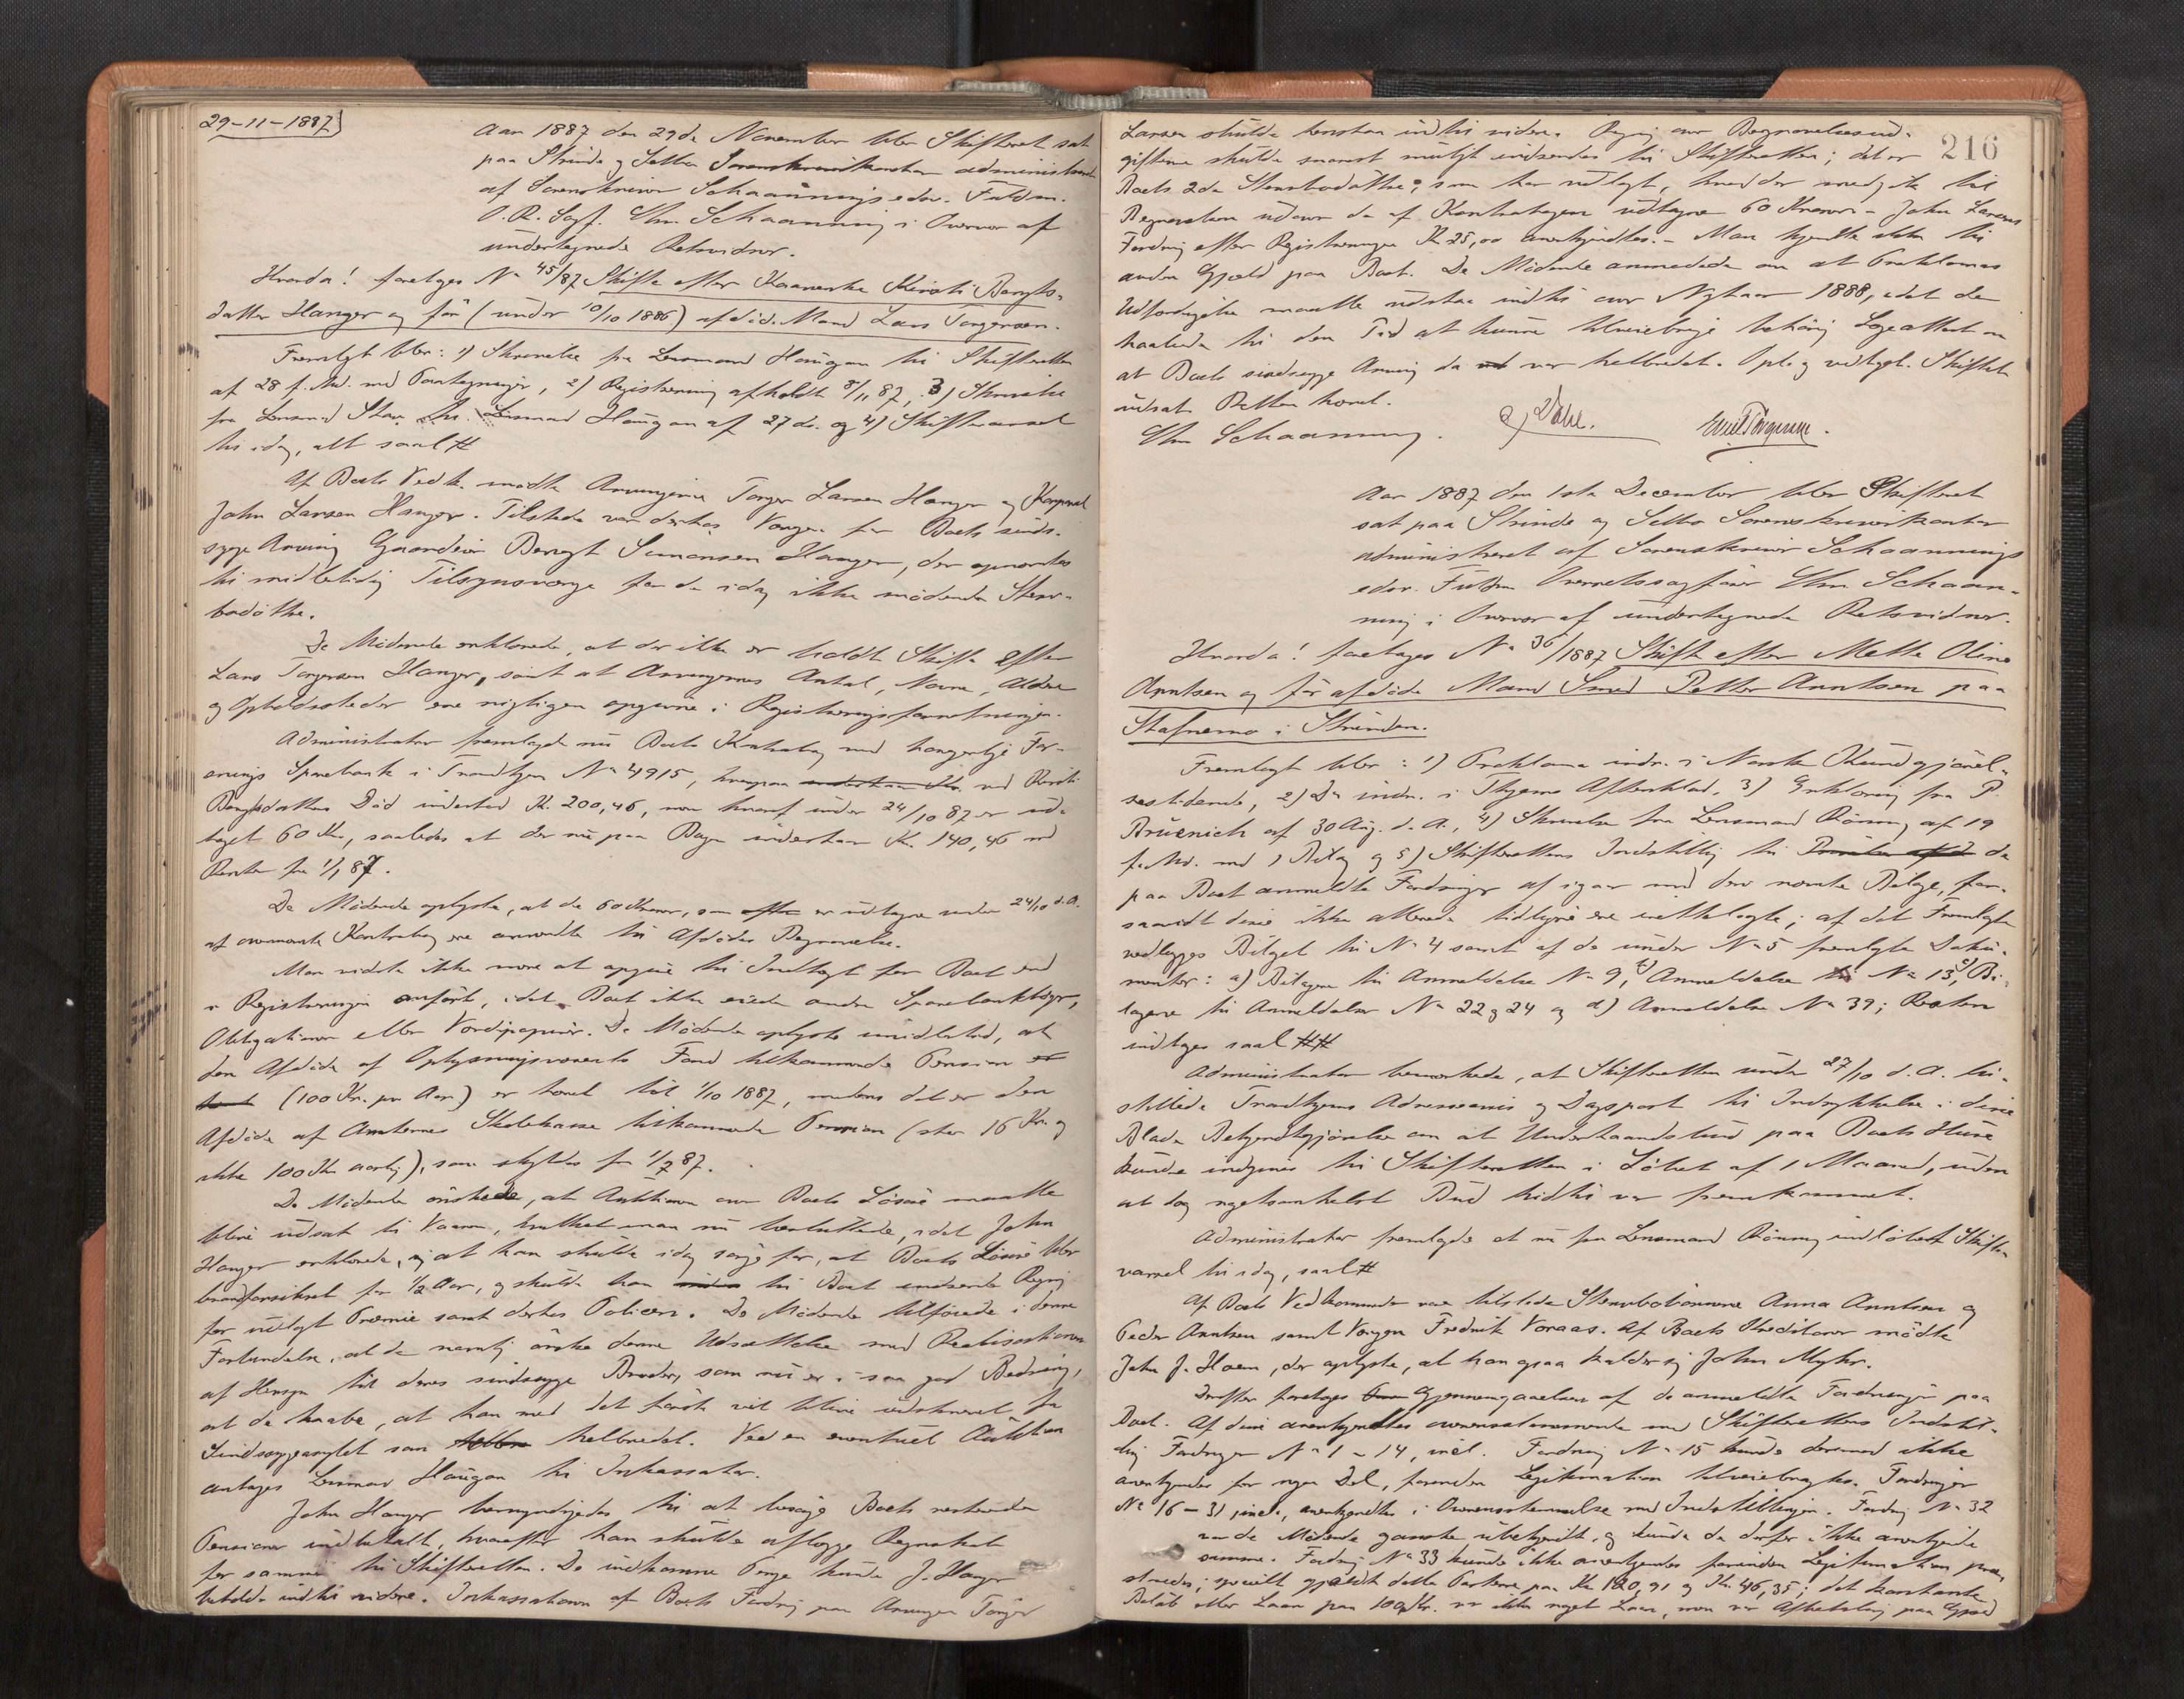 29-11-1887
Aar 1887 den 29de November blev Skifteret sat
paa Strinde og Selbu Sorenskriverkontor administreret
af Sorenskriver Schaannings edsv. Fuldm.
O.R. Sagf. Wm. Schaanning i Overvær af
undertegnede Retsvidner.
Hvorda! foretoges No 45/87 Skifte efter Kaarenke Kirsti Bengts-
datter Hanger og før (under 10/10 1886) afdøde Mand Lars Torgersen.
Fremlagt blev: 1) Skrivelse fra Lensmand Haugan til Skifteretten
af 28 f. Md. med Paategninger, 2) Registrering afholdt 8/11 87, 3) Skrivelse
fra Lensmd Stav til Lensmand Haugan af 27 ds. og 4) Skiftevarsel
til idag, alt saal #
Af Boets Vedk. mødte Arvingerne Torger Larsen Hanger og Korporal
John Larsen Hanger. Tilstede var derhos Vergen for Boets sinds-
syge Arving Gaardeier Bengt Simonsen Hanger, der opnævntes
til midlertidig Tilsynsverge for de idag ikke mødende Sterv-
bodøtre.
De Mødende erklærede, at der ikke er holdt Skifte efter
Lars Torgersen Hanger, samt at Arvingernes Antal, Navne, Aldre
og Opholdssteder ere rigtigen opgivne i Registreringsforretningen.
Administrator fremlagde nu Boets Kontrabog med borgerlige For-
enings Sparebank i Trondhjem No 4915, hvorpaa ved Kirsti
Bengtsdatters Død indestod Kr. 200,46, men hvoraf under 24/10 87 er ud-
taget 60 Kr., saaledes at der nu paa Bogen indestaar Kr. 140,46 med
Renter fra 1/1 87.
De Mødende oplyste, at de 60 Kroner, som er udtagne under 24/10 d.A.
af ovennævnte Kontrabog ere anvendte til Afdødes Begravelse.
Man vidste ikke mere at opgive til Indtægt for Boet end
i Registreringen anført, idet Boet ikke eiede andre Sparebankbøger,
Obligationer eller Værdipapirer. De Mødende oplyste imidlertid, at
den Afdøde af Oplysningsvæsenets Fond tilkommende Pension
(100 Kr. pr Aar) er hævet til 1/10 1887, medens det er den
Afdøde af Amternes Skolekasse tilkommende Pension (stor 16 Kr. og
ikke 100 Kr aarlig), som skyldes fra 1/7 87.
De Mødende ønskede, at Auktionen over Boets Løsøre maatte
blive udsat til Vaaren, hvilket man nu besluttede, idet John
Hanger erklærede, at han skulde idag sørge for, at Boets Løsøre blev
brandforsikret for 1/2 Aar, og skulde han til Boet indsende Regning
for udlagt Præmie samt derhos Policen. De Mødende tilføiede i denne
Forbindelse, at de nemlig ønske denne Udsættelse med Realisationen
af Hensyn til deres sindssyge Broder, som nu er i saa god Bedring,
at de haabe, at han med det første vil blive udskrevet fra
Sindssygeasylet som helbredet. Ved en eventuel Auktion
antages Lensmand Haugan til Inkassator.
John Hanger bemyndigedes til at besørge Boets resterende
Pensioner indbetalt, hvorefter han skulde aflægge Regnskab
for samme til Skifteretten. De indkomne Penge kunde J. Hanger
beholde indtil videre. Inkassationen af Boets Fordring paa Arvingen Torger
216
Larsen skulde bero indtil videre. Regning over Begravelsesud-
gifterne skulde snarest muligt indsendes til Skifteretten; det er
Boets 2de Stervbodøtre, som har udlagt, hvad der medgik til
Begravelsen udover de af Kontrabogen udtagne 60 Kroner. John Larsens
Fordring efter Registreringen Kr 25,00 anerkjendtes. Man kjendte ikke til
anden Gjæld paa Boet. De Mødende anmodede om at Proklamas
Udfærdigelse maatte udstaa indtil over Nytaar 1888, idet de
haabede til den Tid at kunne tilveiebringe behørig Lægeattest om
at Boets sindssyge Arving da var helbredet. Opl. og vedtaget. Skiftet
udsat. Retten hævet.
Wm Schaanning. Emil Torgersen.
Aar 1887 den 1ste December blev Skifteret
sat paa Strinde og Selbu Sorenskriverkontor
administreret af Sorenskriver Schaannings
edsv. Fuldm Overretssagfører Wm Schaan-
ning i Overvær af undertegnede Retsvidner.
Hvorda! foretoges No 36/1887 Skifte efter Mette Oline
Arntsen og før afdøde Mand Smed Petter Arntsen paa
Stafnemo i Strinden.
Fremlagt blev: 1) Proklama indr. i Norsk Kundgjørel-
sestidende, 2) Do indr. i Thjems Aftenblad, 3) Erklæring fra P.
Brüenich af 30 Aug. d. A., 4) Skrivelse fra Lensmand Rønning af 19
f. Md. med 1 Bilag og 5) Skifterettens Indstilling til de
paa Boet anmeldte Fordringer af igaar med deri nævnte Bilage, for-
saavidt disse ikke allerede tidligere ere indlagte; af det Fremlagte
vedlægges Bilaget til No 4 samt af de under No 5 fremlagte Doku-
menter: a) Bilagene til Anmeldelse No 9, b) Anmeldelse No 13, c) Bi-
lagene til Anmeldelser No 22 og 24 og d) Anmeldelse No 39; Resten
indtages saal ##
Administrator bemærkede, at Skifteretten under 27/10 d.A. til-
stillede Trondhjems Adresseavis og Dagspost til Indrykkelse i disse
Blade Bekjendtgjørelse om at Underhaandsbud paa Boets Huse
kunde indgives til Skifteretten i Løbet af 1 Maaned, uden
at dog nogetsomhelst Bud hidtil var fremkommet.
Administrator fremlagde et nu fra Lensmand Rønning indløbet Skifte-
varsel til idag, saal #
Af Boets Vedkommende var tilstede Stervbobørnene Anna Arntsen og
Peder Arntsen samt Vergen Fredrik Voraas. Af Boets Kreditorer mødte
John J. Hoem, der oplyste, at han ogsaa kalder sig John Myhr.
Derefter foretoges Gjennemgaaelsen af de anmeldte Fordringer paa
Boet. Af disse anerkjendtes overensstemmende med Skifterettens Indstil-
ling Fordringer No 1 - 14, incl. Fordring No 15 kunde derimod ikke
anerkjendes for nogen Del, forinden Legitimation tilveiebragtes. Fordringer
No 16 - 31, incl., anerkjendtes i Overensstemmelse med Indstillingen. Fordring No 32
var de Mødende ganske ubekjendt, og kunde de derfor ikke anerkjende
samme. Fordring No 33 kunde ikke anerkjendes forinden Legitimation præ-
steredes; specielt gjældt dette Posterne paa Kr. 120,91 og Kr. 46,35; det kontante
Beløb eller Laan paa 100 Kr. var ikke noget Laan, men var Afbetaling paa Gjæld